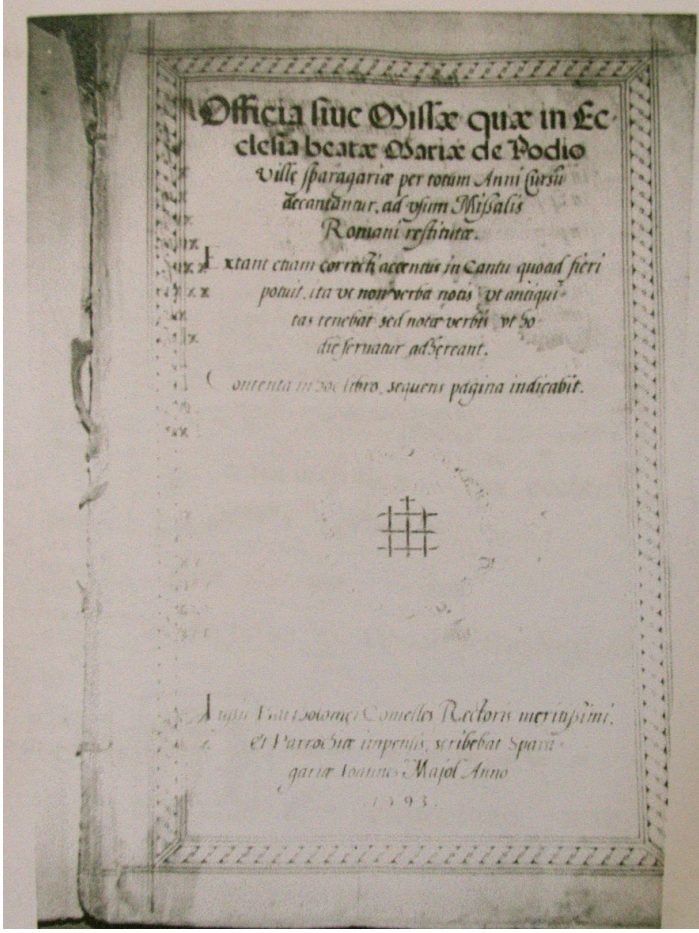 Officia siue Missæ quæ in Ec-
clesia beatæ Mariæ de Podio
Ville sparagariæ per totum Anni Cursũ
decantantur, ad vsum Missalis
Romani restitutæ.
Extant etiam correcti accentus in Cantu quoad fieri
potuit, ita vt non verba notis vt antiqui-
tas tenebat sed notæ verbis vt ho
die seruatur adhereant.
Contenta in hoc libro, sequens pagina indicabit.
Iussu Bartholomei Comelles Rectoris meritissimi,
et Parrochiæ impensis, scribebat Spara-
gariæ Ioannes Majol Anno
1593.